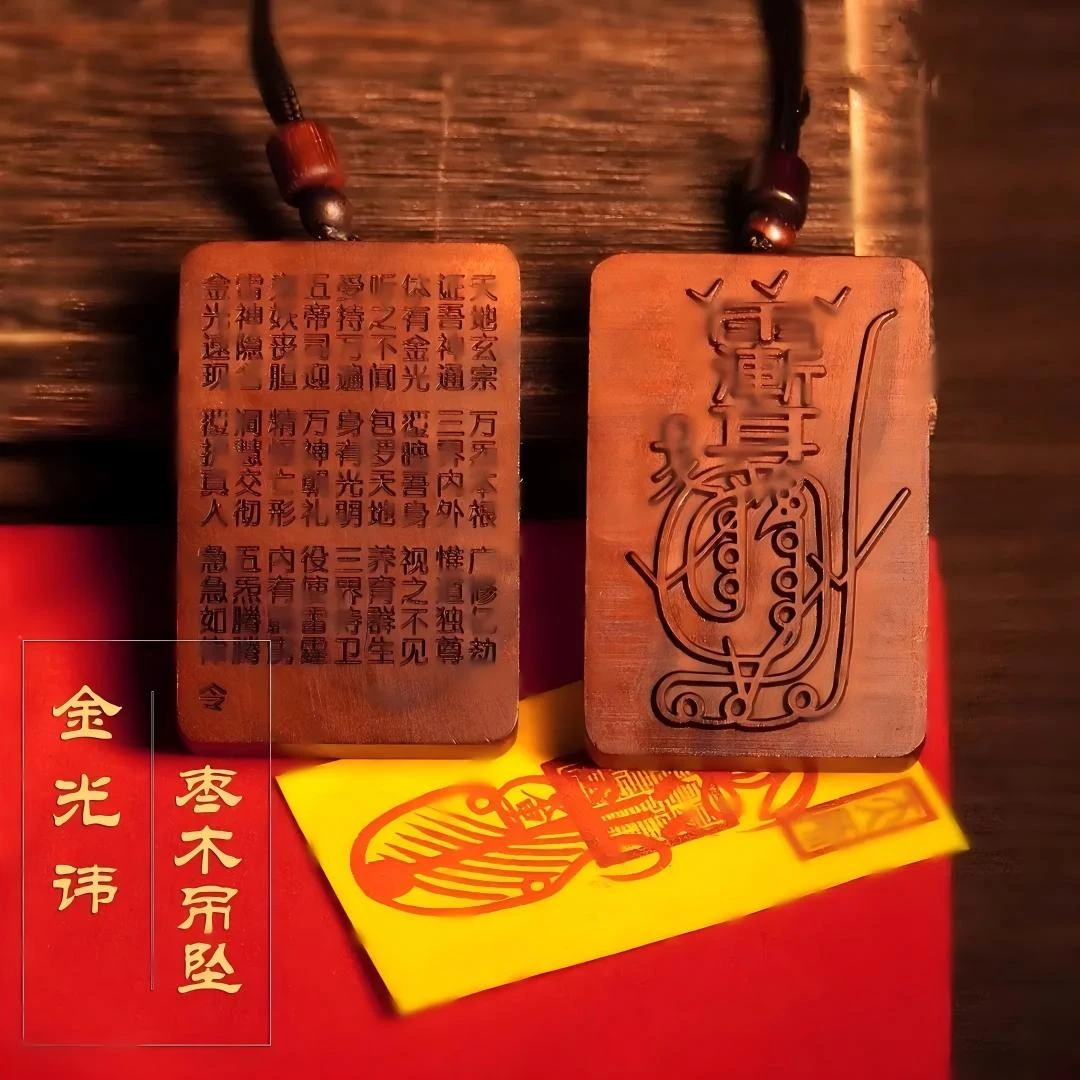 天地玄宗 万炁本根 广修劫
证吾神通 三界内外 惟道独尊
体有金光 覆吾身 视之不见
听之不闻 包罗天地 养育群生
受持万遍 身有光明 三界侍卫
五帝司迎 万神朝礼 役使雷霆
妖丧胆 精亡形 内有
雷神隐 洞慧交彻 五炁腾腾
金光速现 覆护真人 急急如律
令
金光讳
枣木吊坠